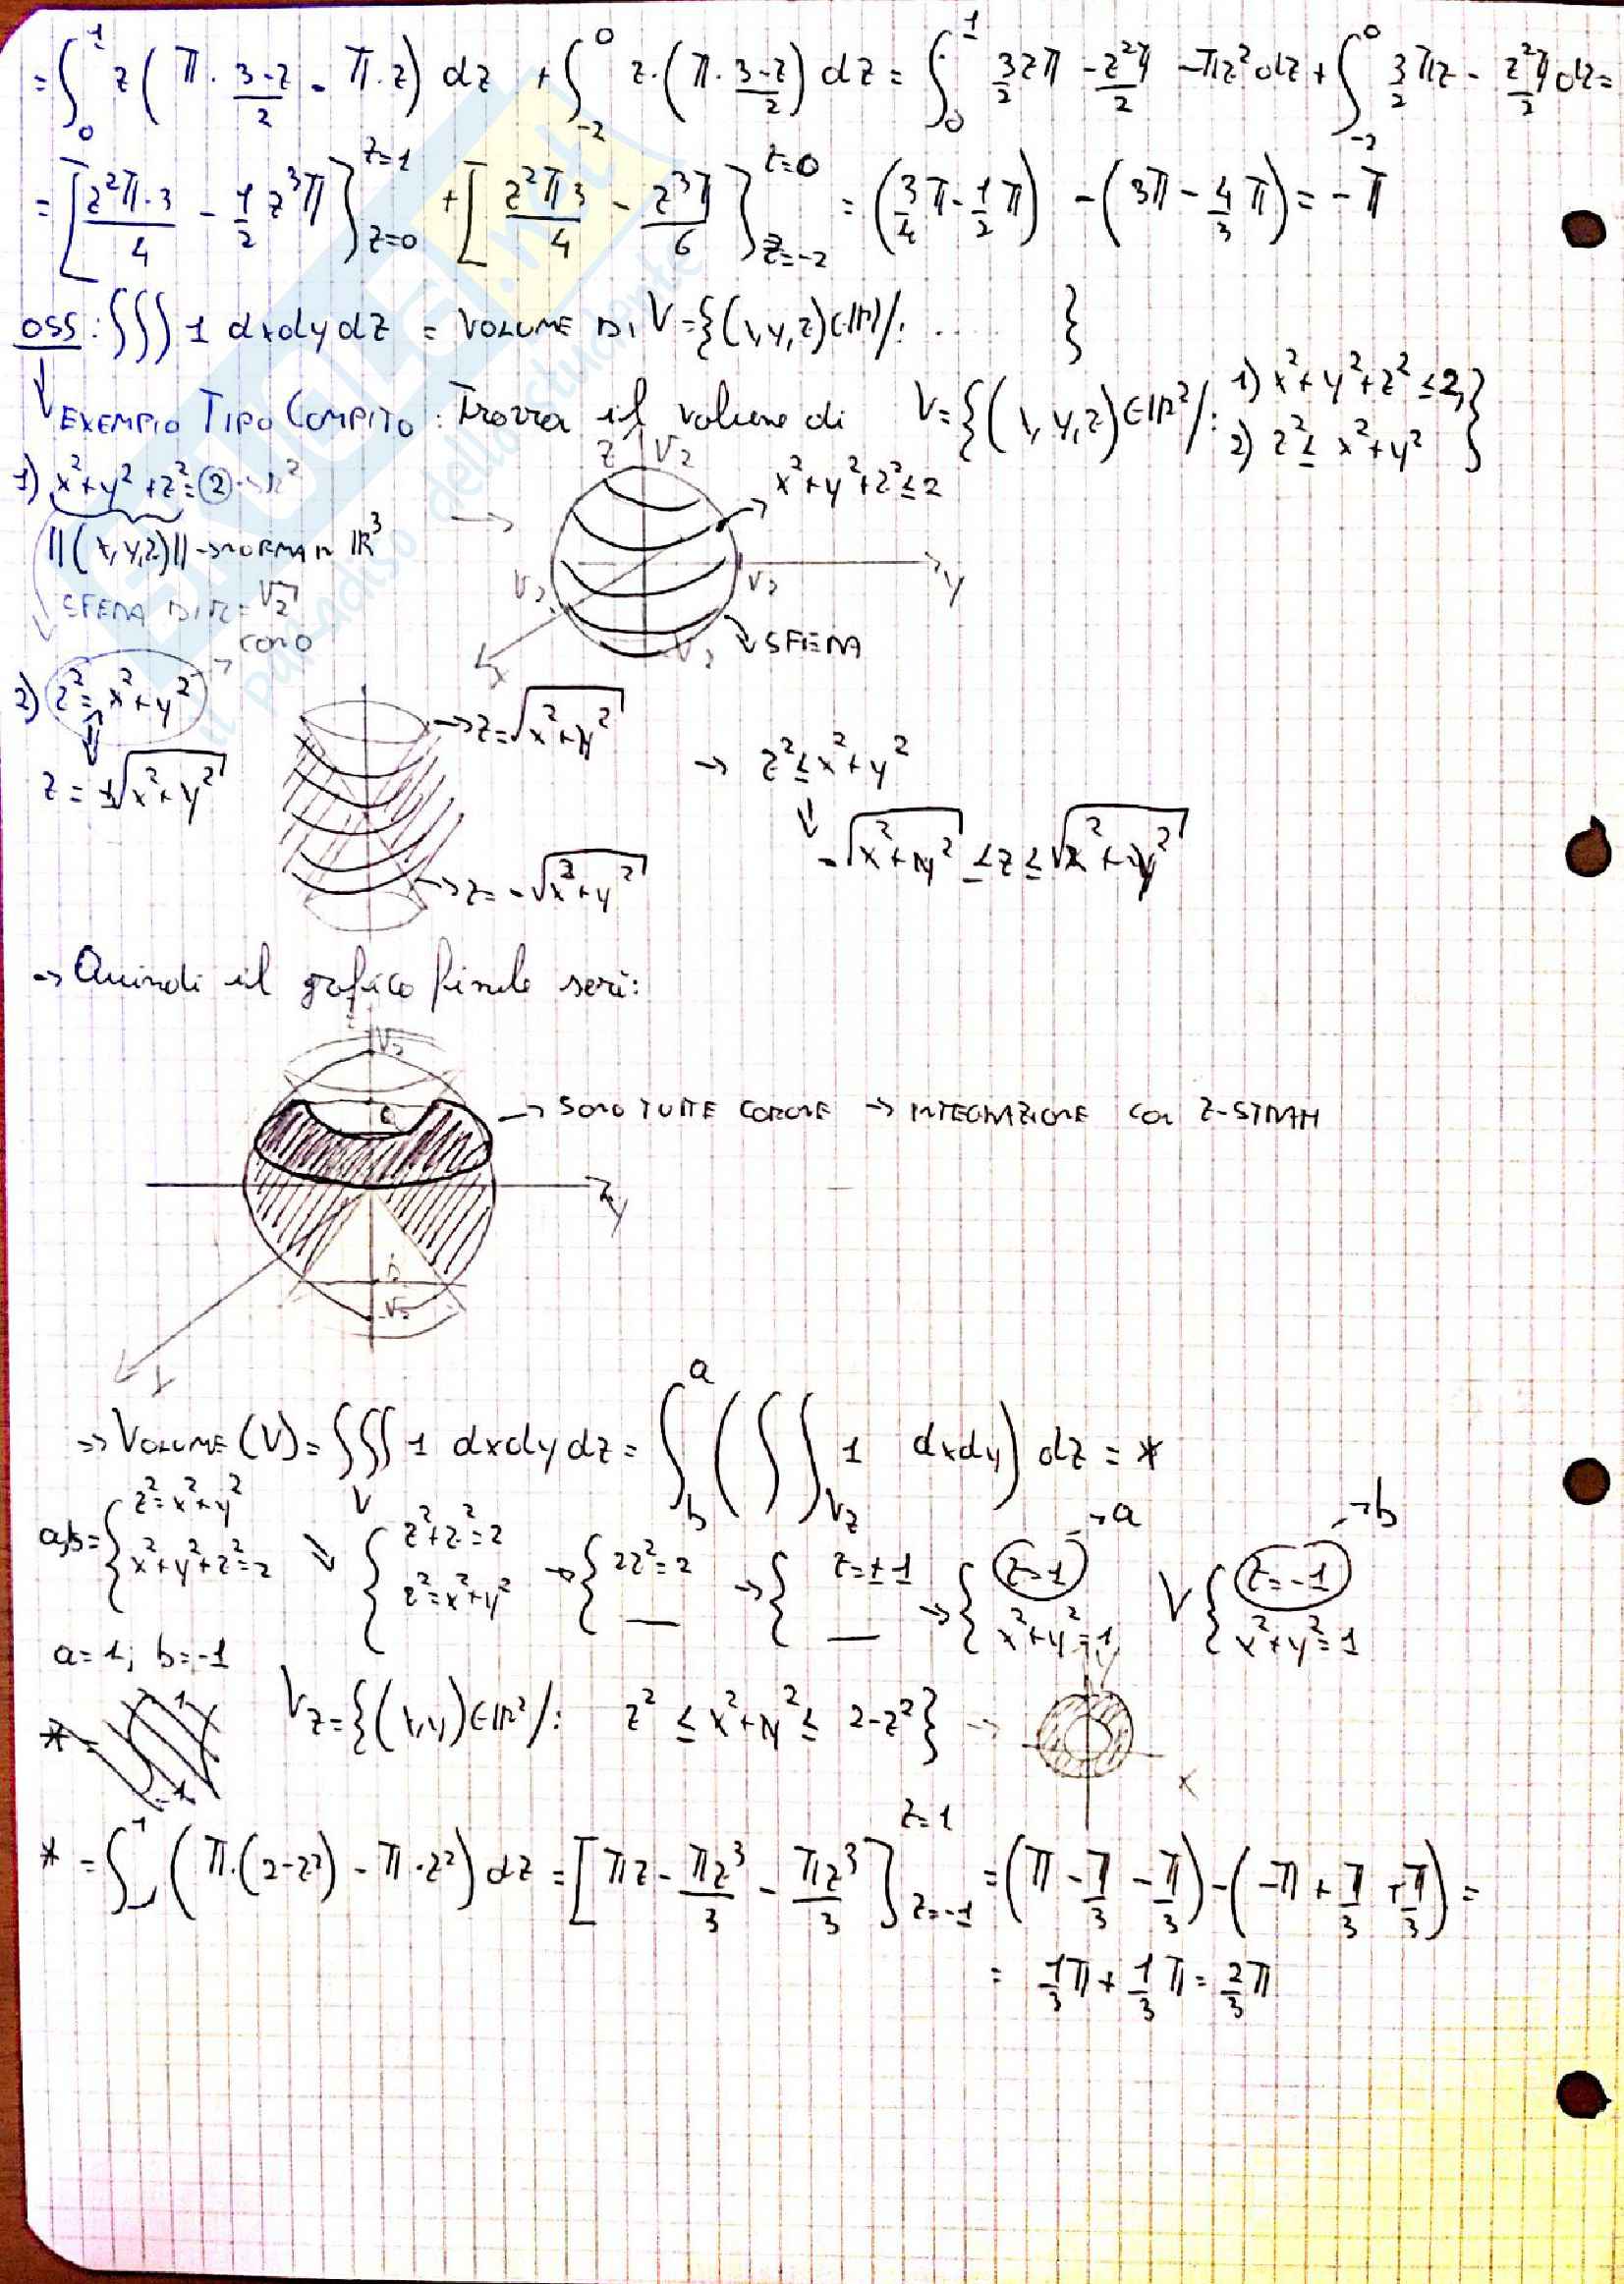 = ∫_0^1 z(π·(3-z)/2 - π·z) dz + ∫_{-2}^0 z·(π·(3-z)/2) dz = ∫_0^1 3/2 zπ - z²π/2 - πz² dz + ∫_{-2}^0 3/2 πz - z²π/2 dz =
= [z²π·3/4 - 1/2 z³π]_{z=0}^{z=1} + [z²π3/4 - z³π/6]_{z=-2}^{z=0} = (3/4 π - 1/2 π) - (3π - 4/3 π) = -π
OSS: ∫∫∫ 1 dxdydz = VOLUME DI V={(x,y,z)∈ℝ/: .... }
EXEMPIO TIPO COMPITO: Trova il volume di V={(x,y,z)∈ℝ²/: 1) x²+y²+z² ≤ 2, 2) z² ≤ x²+y² }
1) x²+y²+z²=2
z √2 x²+y²+z²≤2
||(x,y,z)|| → NORMA IN ℝ³
√2 √2 y
SFERA DI R=√2
x √2 SFERA
CONO
2) z²=x²+y²
z=√(x²+y²) → z²≤x²+y²
z=±√(x²+y²)
-√(x²+y²) ≤ z ≤ √(x²+y²)
z=-√(x²+y²)
→ Quindi il grafico finale sarà:
z √2
a → SONO TUTTE CORONE → INTEGRAZIONE CON Z-STRATI
y
b
-√2
x
⇒ VOLUME(V) = ∫∫∫_V 1 dxdydz = ∫_b^a (∫∫_{V_z} 1 dxdy) dz = *
a,b = { z²=x²+y² x²+y²+z²=2 ⇒ { z²+z²=2 z²=x²+y² → { 2z²=2 — → { z=±1 — → { z=1 → a x²+y²=1 V { z=-1 → b x²+y²=1
a=1; b=-1
V_z={(x,y)∈ℝ²/: z² ≤ x²+y² ≤ 2-z²} → y x
* = ∫_{-1}^1 (π·(2-z²) - π·z²) dz = [πz - πz³/3 - πz³/3]_{z=-1}^{z=1} = (π - π/3 - π/3) - (-π + π/3 + π/3) =
= 1/3 π + 1/3 π = 2/3 π